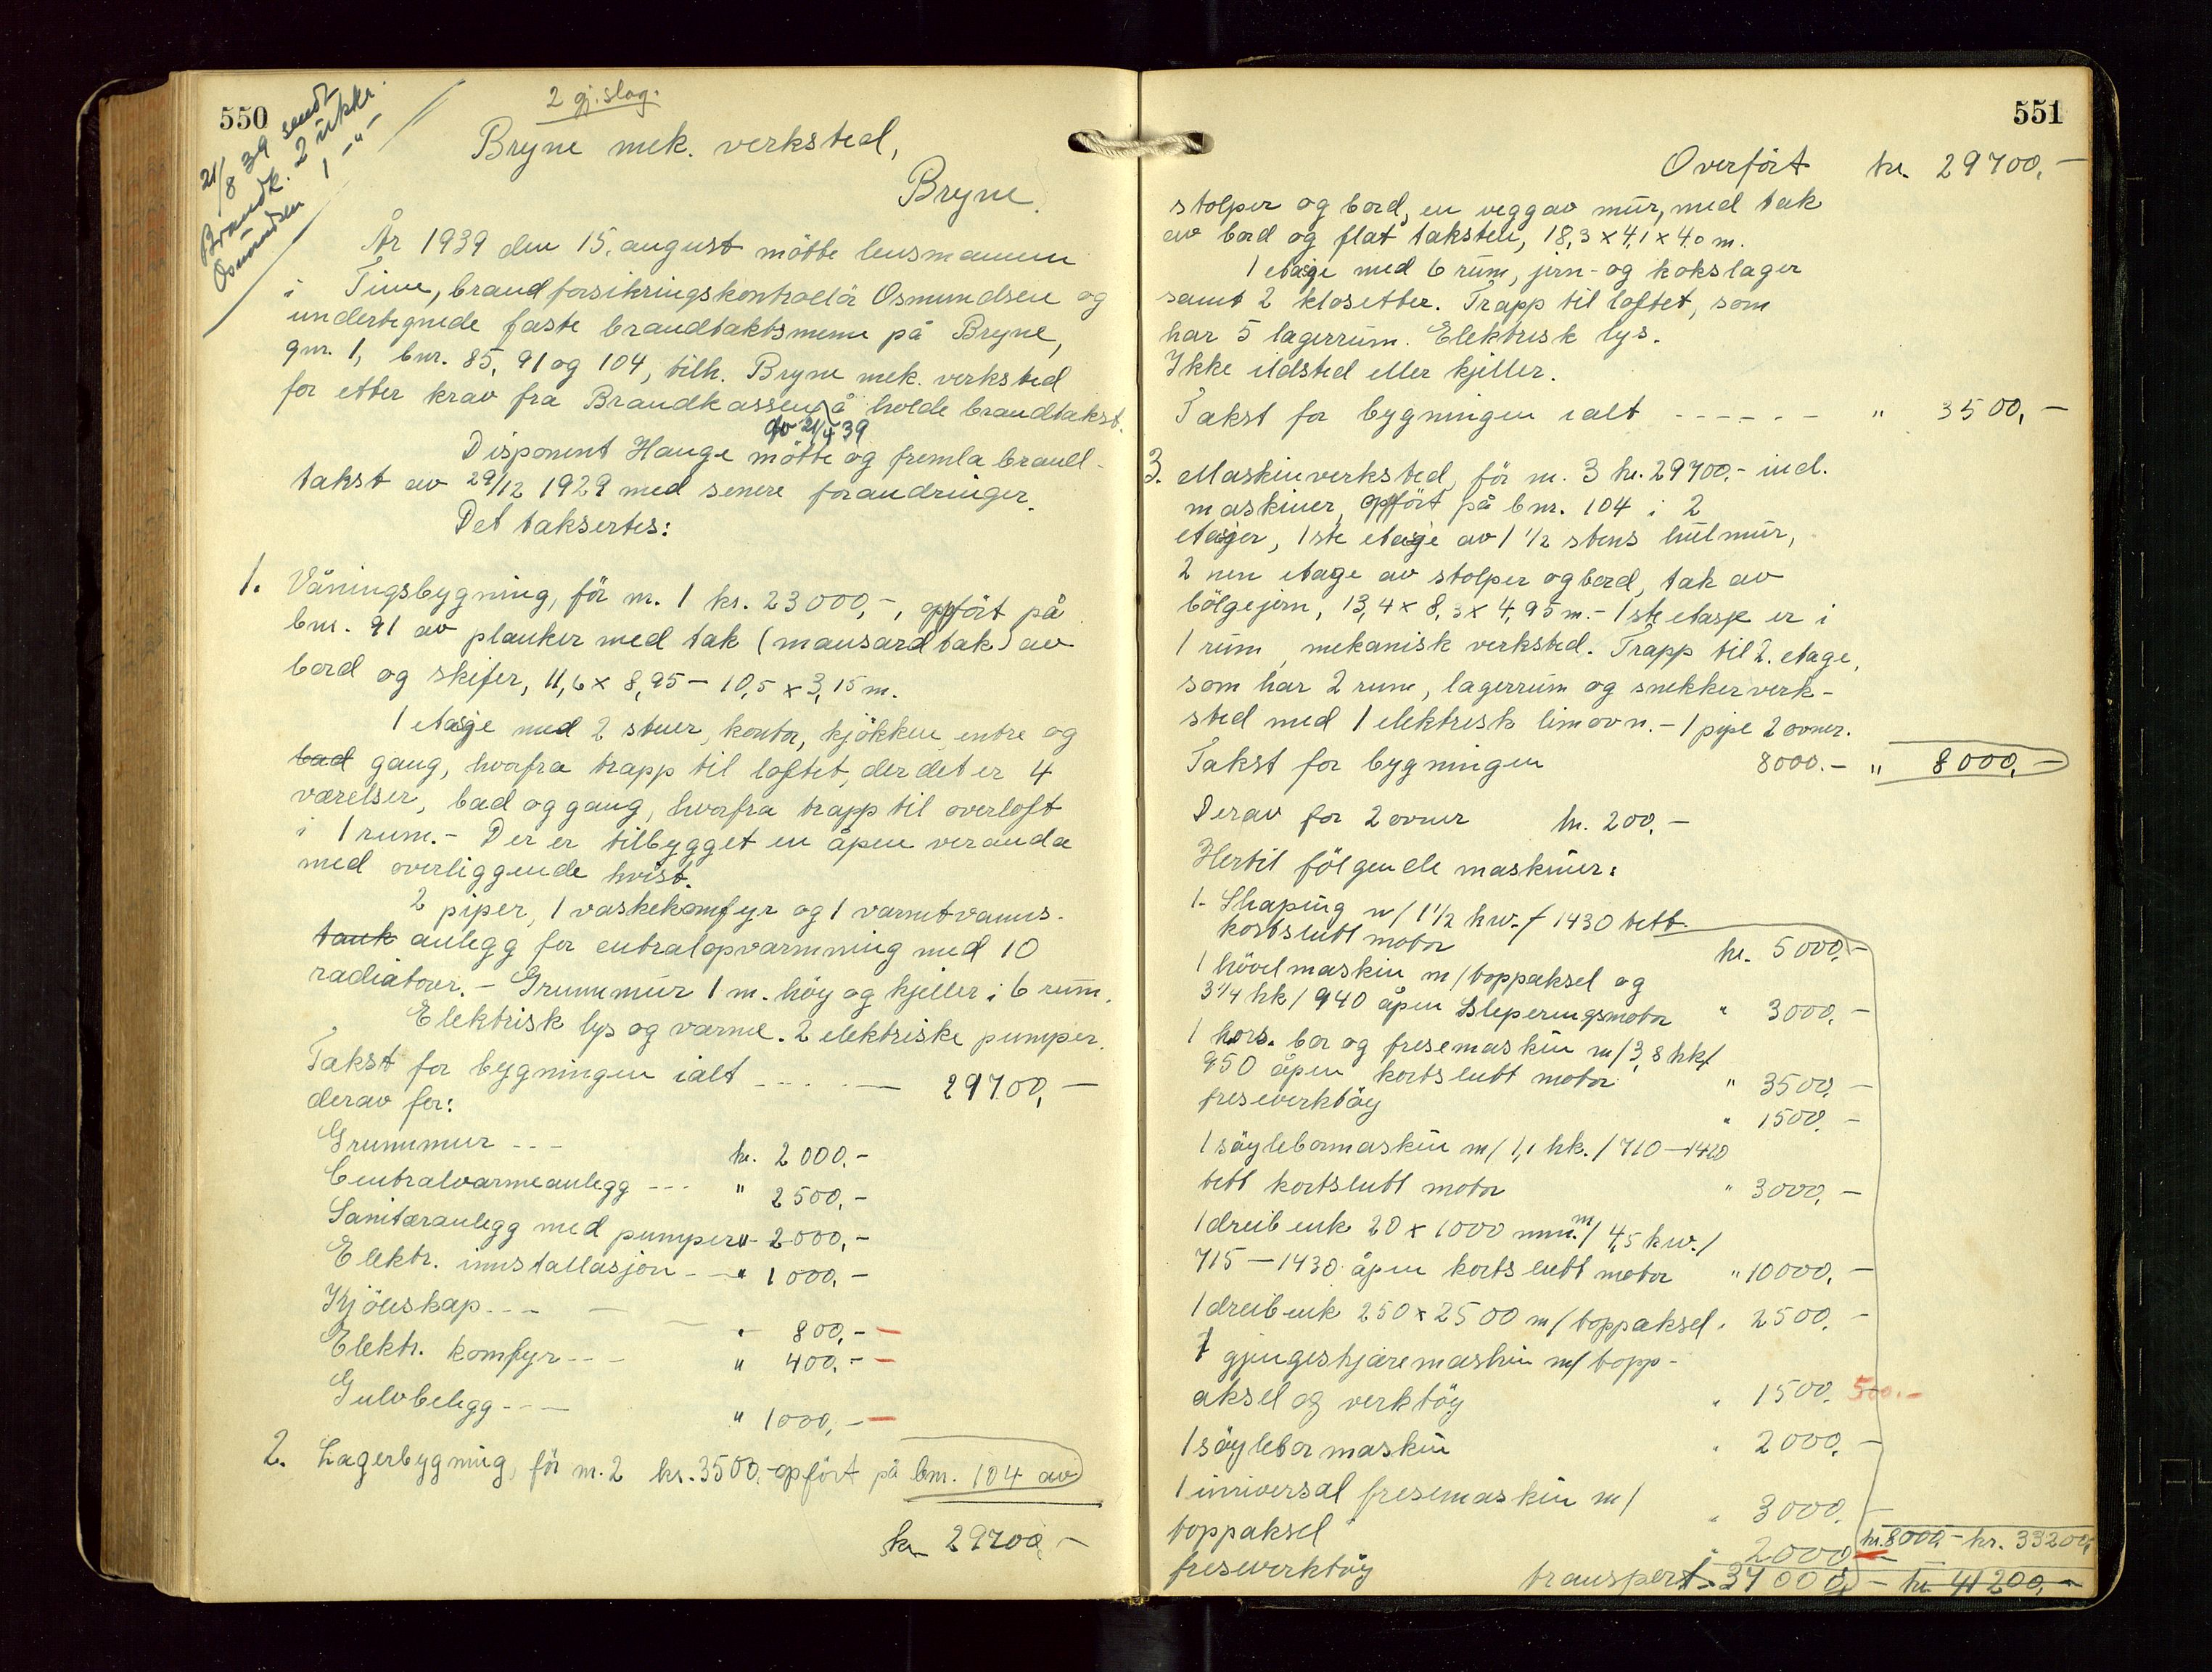 550
21/8 39 sendt
Brandk. 2 utskr.
Osmundsen 1 -"-
2 gj.slag.
Bryne mek. verksted,
Bryne.
År 1939 den 15. august mötte lensmannen
i Time, brandforsikringskontrollör Osmundsen og
undertegnede faste brandtakstmenn på Bryne,
gnr. 1, bnr. 85, 91 og 104, tilh. Bryne mek. verksted
for etter krav fra Brandkassen å holde brandtakst.
av 21/4 39
Disponent Hauge mötte og fremla brand-
takst av 29/12 1929 med senere forandringer.
Det taksertes:
1. Våningsbygning, för m. 1 kr. 23000,-, oppfört på
bnr. 91 av planker med tak (mansardtak) av
bord og skifer, 11,6 x 8,95 - 10,5 x 3,15 m.
1 etasje med 2 stuer, kontor, kjökken entre og
bad gang, hvorfra trapp til loftet, der det er 4
værelser, bad og gang, hvorfra trapp til overloft
i 1 rum. - Der er tilbygget en åpen veranda
med overliggende kvist.
2 piper, 1 vaskekomfyr og 1 varmtvanns-
tank anlegg for sentralopvarmning med 10
radiatorer. - Grunnmur 1 m. höy og kjeller i 6 rum.
Elektrisk lys og varme. 2 elektriske pumper.
Takst for bygningen ialt - - - - - 29700,-
derav for:
Grunnmur - - - kr. 2000.-
Centralvarmeanlegg - - - " 2500,-
Sanitæranlegg med pumper " 2000,-
Elektr. innstallasjon - - " 1000,-
Kjöleskap - - - " 800,-
Elektr. komfyr - - - " 400,-
Gulvbelegg - - - " 1000,-
2. Lagerbygning, för m. 2 kr. 3500,- opfört på bnr. 104 av
kr. 29700,-
551
Overfört kr. 29700,-
stolper og bord, en vegg av mur, med tak
av bord og flat taksten, 18,3 x 4,1 x 4.0 m.
1 etasje med 6 rum, jern- og kokslager
samt 2 klosetter. Trapp til loftet, som
har 5 lagerrum. Elektrisk lys.
Ikke ildsted eller kjeller.
Takst for bygningen ialt - - - - - - " 3500,-
3. Maskinverksted, för m. 3 kr. 29700,- incl.
maskiner, oppfört på bnr. 104 i 2
etasjer, 1ste etasje av 1 1/2 stens hulmur,
2 nen etage av stolper og bord, tak av
bölgejern, 13,4 x 8,3 x 4,95 m. - 1ste etasje er i
1 rum, mekanisk verksted. Trapp til 2. etage,
som har 2 rum, lagerrum og snekkerverk-
sted med 1 elektrisk limovn. - 1 pipe 2 ovner.
Takst for bygningen 8000.- " 8000,-
Derav for 2 ovner kr. 200.-
Hertil fölgende maskiner:
1. Shaping m/ 1 1/2 kw. / 1430 tett
kortslutt motor kr. 5000,-
1 hövelmaskin m/toppaksel og
3 1/4 hk / 940 åpen sleperingsmotor " 3000,-
1 hors. bor og fresemaskin m/ 3,8 hk/
950 åpen kortslutt motor " 3500,-
freseverktöy " 1500.-
1 söylebormaskin m/ 1,1 hk. / 710 - 1420
tett kortslutt motor " 3000,-
1 dreibenk 20 x 1000 mm. m/ 4,5 kw. /
715 - 1430 åpen kortslutt motor " 10000,-
1 dreibenk 250 x 2500 m/ toppaksel " 2500,-
1 gjengeskjæremaskin m/ topp-
aksel og verktöy " 1500. 500.-
1 söylebormaskin " 2000,-
1 universal fresemaskin m/
toppaksel " 3000,-
freseverktöy " 2000,- kr. 8000,- kr. 33200,
transport 37000,- kr. 41200,-